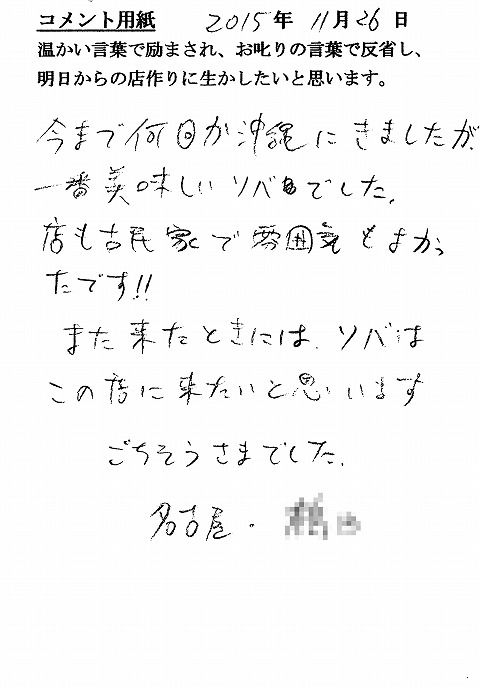 コメント用紙 2015年 11月26日
温かい言葉で励まされ、お叱りの言葉で反省し、
明日からの店作りに生かしたいと思います。
今まで何回か沖縄にきましたが、
一番美味しいソバでした。
店も古民家で雰囲気もよかっ
たです!!
また来たときには、ソバは
この店に来たいと思います
ごちそうさまでした。
名古屋・